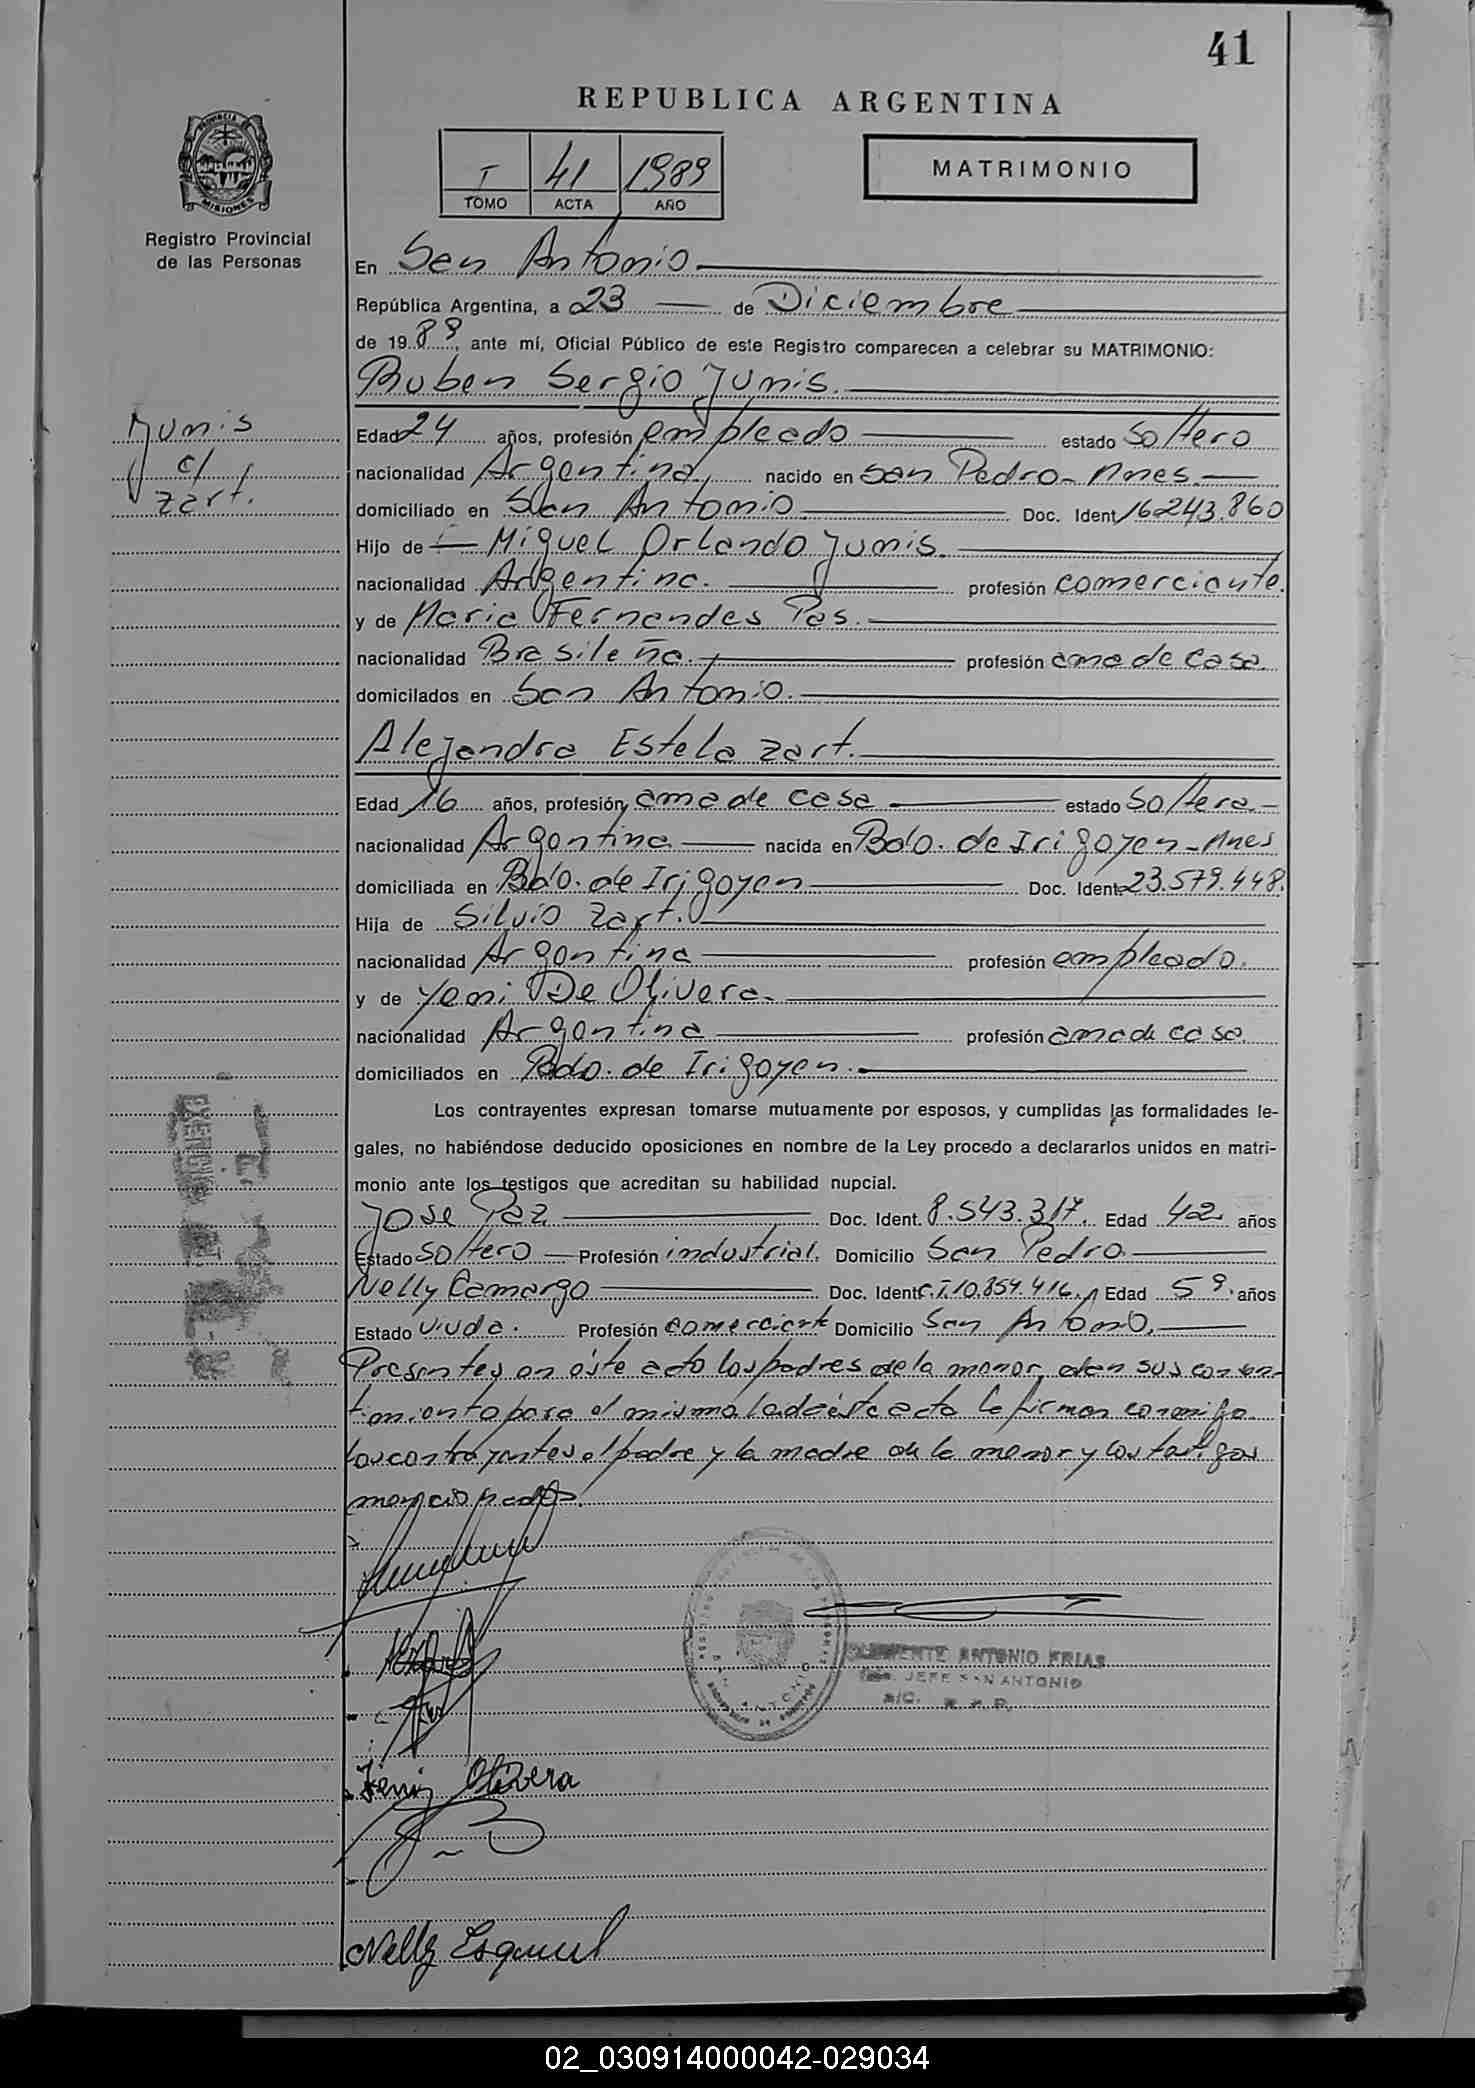 41
REPUBLICA ARGENTINA
I 41 1989
TOMO ACTA AÑO
MATRIMONIO
PROVINCIA DE MISIONES
Registro Provincial
de las Personas
En San Antonio
República Argentina, a 23 de Diciembre
de 1989, ante mí, Oficial Público de este Registro comparecen a celebrar su MATRIMONIO:
Ruben Sergio Junis.
Junis
c/
Zart.
Edad 24 años, profesión empleado estado Soltero
nacionalidad Argentina, nacido en San Pedro - Mnes.
domiciliado en San Antonio Doc. Ident 16.243.860
Hijo de Miguel Orlando Junis.
nacionalidad Argentina. profesión comerciante.
y de Maria Fernandes Pas.
nacionalidad Brasileña. profesión ama de casa.
domicilados en San Antonio.
Alejandra Estela Zart.
Edad 16 años, profesión ama de casa estado Soltera
nacionalidad Argentina nacida en Bdo. de Irigoyen - Mnes
domiciliada en Bdo. de Irigoyen Doc. Ident. 23.579.448.
Hija de Silvio Zart.
nacionalidad Argentina profesión empleado.
y de Yeni De Olivera.
nacionalidad Argentina profesión ama de casa.
domiciliados en Bdo. de Irigoyen.
Los contrayentes expresan tomarse mutuamente por esposos, y cumplidas las formalidades le-
gales, no habiéndose deducido oposiciones en nombre de la Ley procedo a declararlos unidos en matri-
monio ante los testigos que acreditan su habilidad nupcial.
Jose Paz Doc. Ident. 8.543.317. Edad 42 años
Estado Soltero Profesión industrial. Domicilio San Pedro
Nelly Camargo Doc. Ident C.I. 10.854.416. Edad 59 años
Estado viuda. Profesión comerciante Domicilio San Antonio.
Presentes en éste acto los padres de la menor, dan sus consen-
timiento para el misma leda éste acto la firman conmigo
los contrayentes el padre y la madre de la menor y los testigos
mencionados.
CLEMENTE ANTONIO FRIAS
JEFE SAN ANTONIO
A/C. R.P.P.
SAN ANTONIO
Yeni Olivera
Nelly Esquivel
02_030914000042-029034